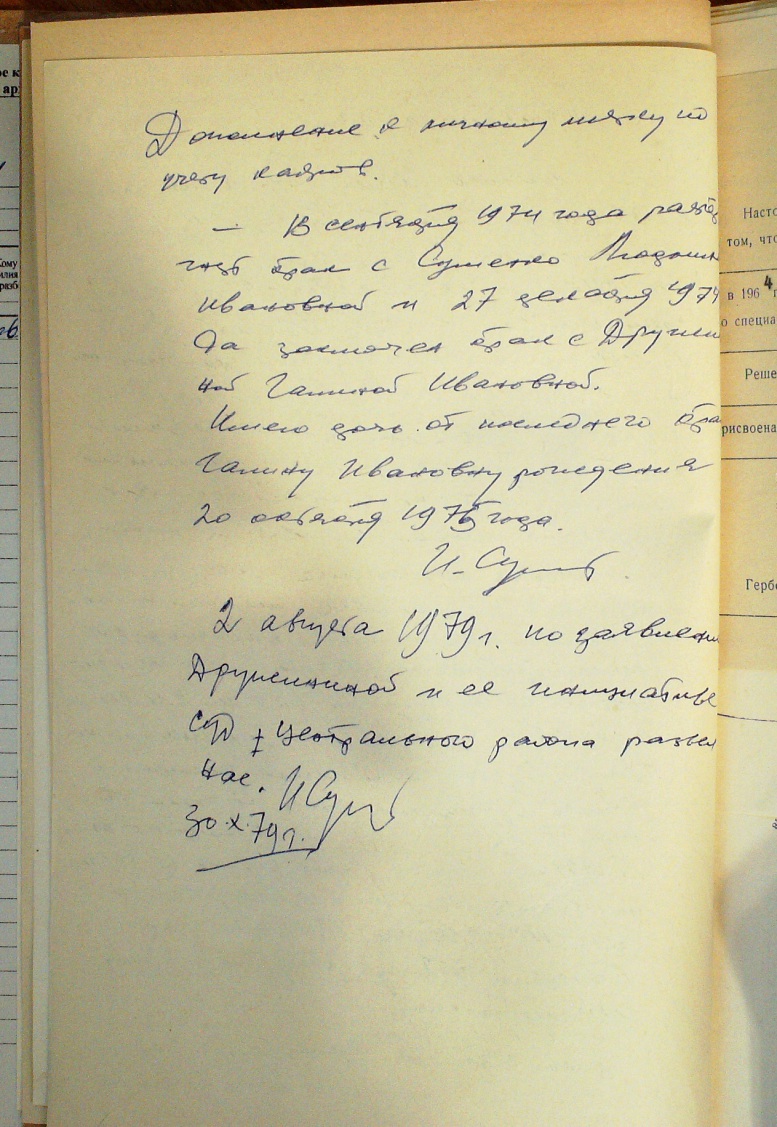 Дополнение к личному листку по
учету кадров.
— В сентябре 1974 года растор
гнут брак с Сушенко Людмил
Ивановной и 27 декабря 1974
да заключен брак с Дружин
ной Галиной Ивановной.
Имею дочь от последнего бра
Галину Ивановну рождения
20 октября 1975 года.
2 августа 1979 г. по заявлени
Дружининой и ее инициативе
суд Центрального района разве
нас.
30.X.79 г.
Насто
том, что
в 1964 г
о специа
Реше
рисвоена
Гербо